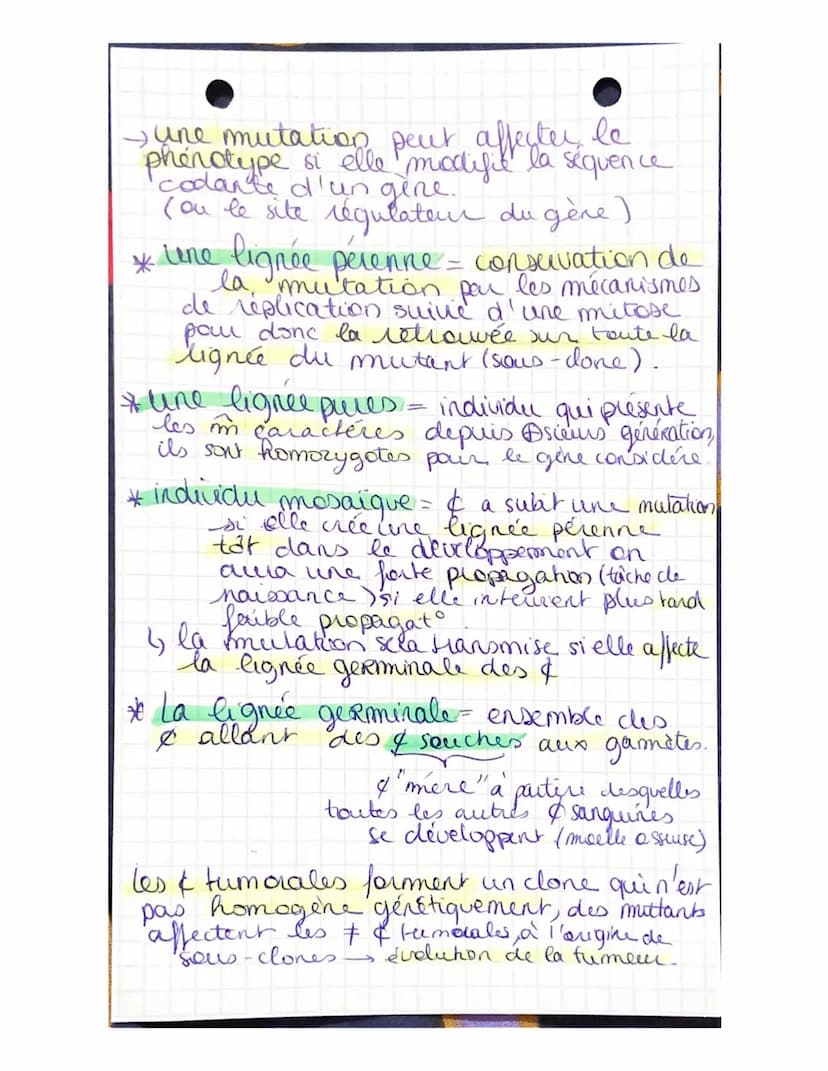 → une mutation peut affecter le
phénotype si elle modifie la séquence
codante d'un gène.
(ou le site régulateur du gène)
* une lignée pérenne = conservation de
la mutation par les mécanismes
de réplication suivie d'une mitose
pour donc la retrouvée sur toute la
lignée du mutant (sous-clone).
* une lignée pures = individu qui présente
les m̂ caractères depuis ⊕sieurs génération,
ils sont homozygotes pour le gène considéré.
* individu mosaïque = ¢ a subit une mutation
si elle crée une lignée pérenne
tôt dans le développement on
aura une forte propagation (tâche de
naissance) si elle intervient plus tard
faible propagat°.
↳ la mutation sera transmise si elle affecte
la lignée germinale des ¢
* La lignée germinale = ensemble des
¢ allant des ¢ souches aux gamètes.
¢ "mère" à partire desquelles
toutes les autres ¢ sanguines
se développent (moelle osseuse)
les ¢ tumorales forment un clone qui n'est
pas homogène génétiquement, des muttants
affectent les ≠ ¢ tumorales, à l'origine de
sous-clones → évolution de la tumeur.